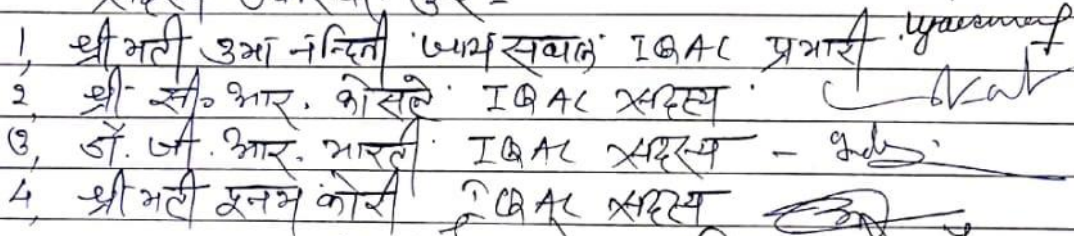 1, श्रीमती उमा नन्दिनी जायसवाल IQAC प्रभारी
2, श्री सी० आर. कोसले IQAC सदस्य
3, डॉ. जी. आर. भारती IQAC सदस्य -
4, श्रीमती पूनम कोरी IQAC सदस्य